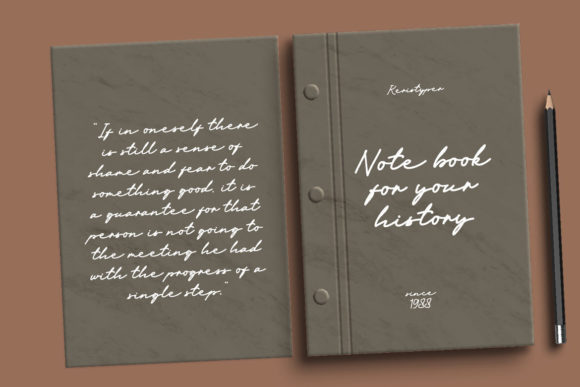 "If in oneself there
is still a sense of
shame and fear to do
something good, it is
a guarantee for that
person is not going to
the meeting he had
with the progress of a
single step."
Keristyper
Note book
for your
history
since
1988